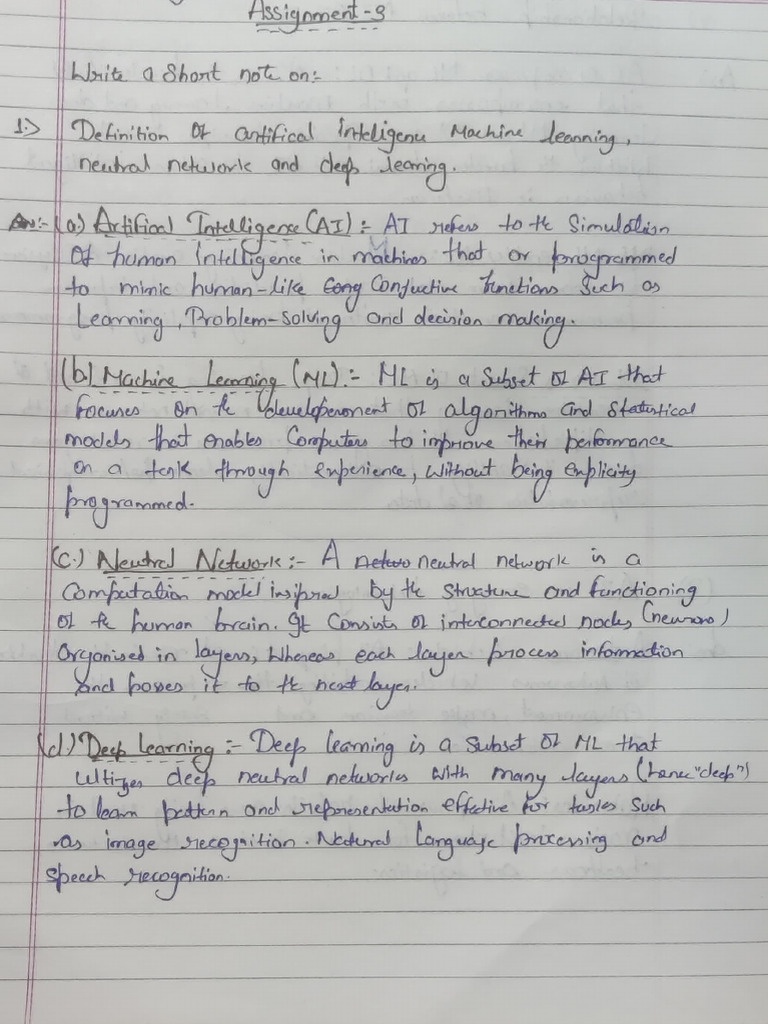 Assignment-3
Write a Short note on:-
1.> Definition of artifical inteligene Machine learning,
neutral network and deep learing.
Ans:- (a) Artifical Intelligence (AI) :- AI refers to the Simulation
Of human Intelligence in machines that or programmed
to mimic human-like Cong Conjuctive functions Such as
Learning, Problem-Solving and decision making.
(b) Machine Learning (ML) :- ML is a Subset of AI that
focuses on the developement of algorithms and Statistical
models that enables Computers to improve their performance
on a task through experience, without being explicity
programmed.
(C.) Neutral Network:- A netwo neutral network is a
Computation model insipred by the structure and functioning
of the human brain. It Consists of interconnected nodes (neurons)
Organised in layers, Whereas each layer process information
and posses it to the next layer.
(d.) Deep Learning :- Deep learning is a Subset of ML that
Ultizes deep neutral networks with many layers (hence "deep")
to learn pattern and representation effective for tasks Such
as image recognition. Natural Language processing and
Speech recognition.